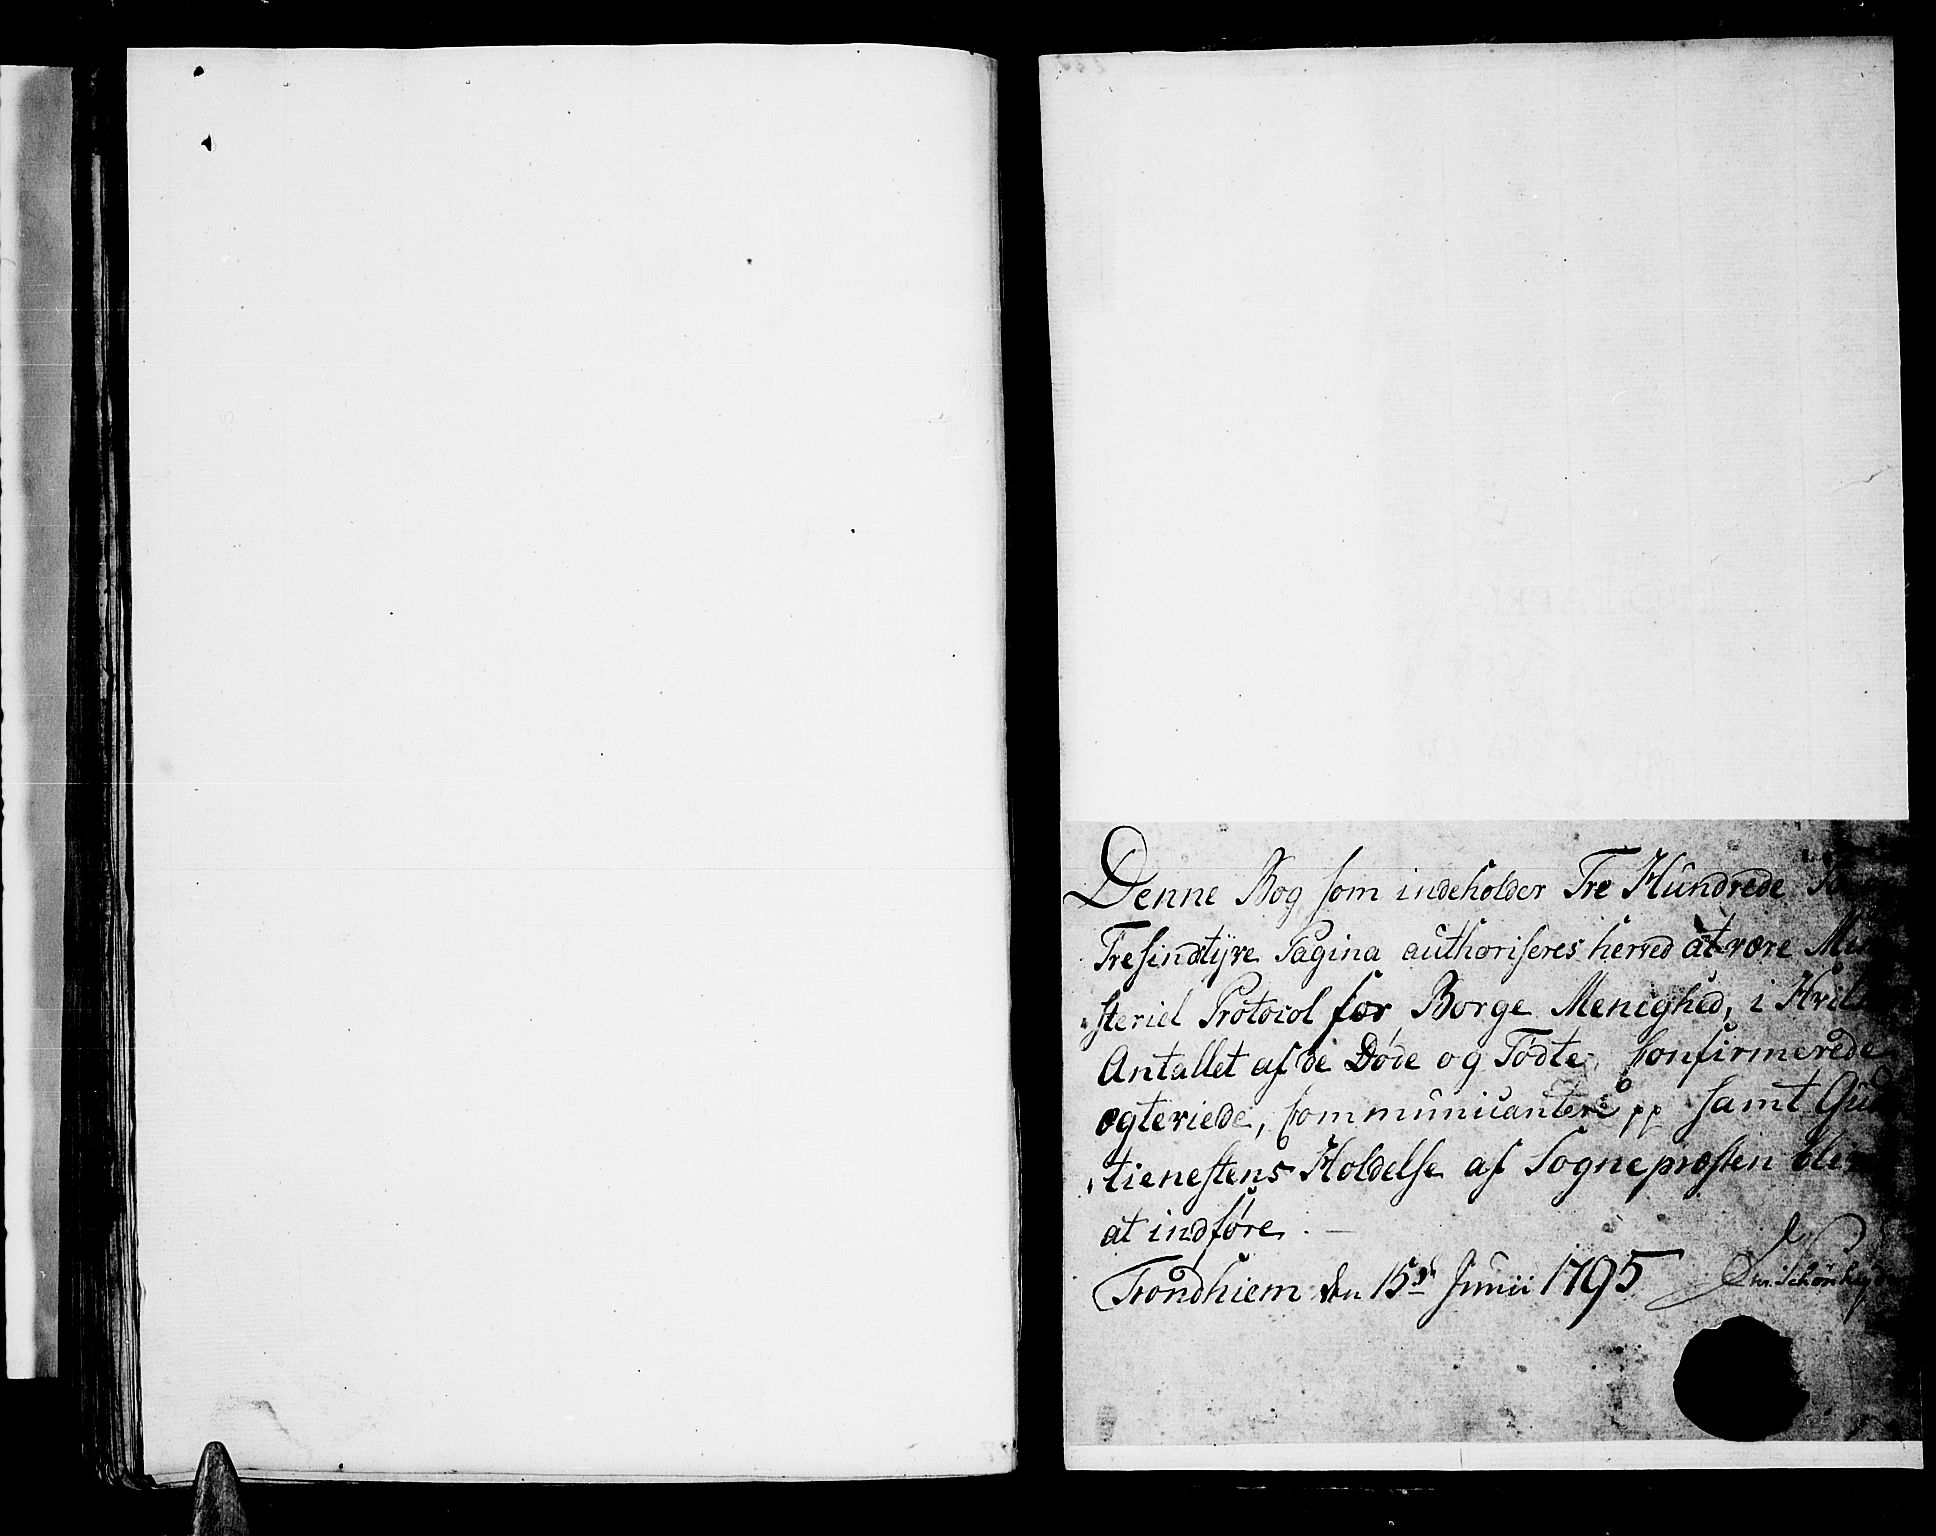 Denne Bog som indeholder Tre Hundrede
Tresindtÿve Pagina authoriseres herved at være Mi
steriel Protocol for Borge Menighed, i Hvil
Antallet af de Døde og Födte, Confirmerede
ægteviede, Communicantere pp samt Gud
tienestens Holdelse af Sognepræsten bli
at indføre.
Trondhiem den 15de Junii 1795
Schønheyder